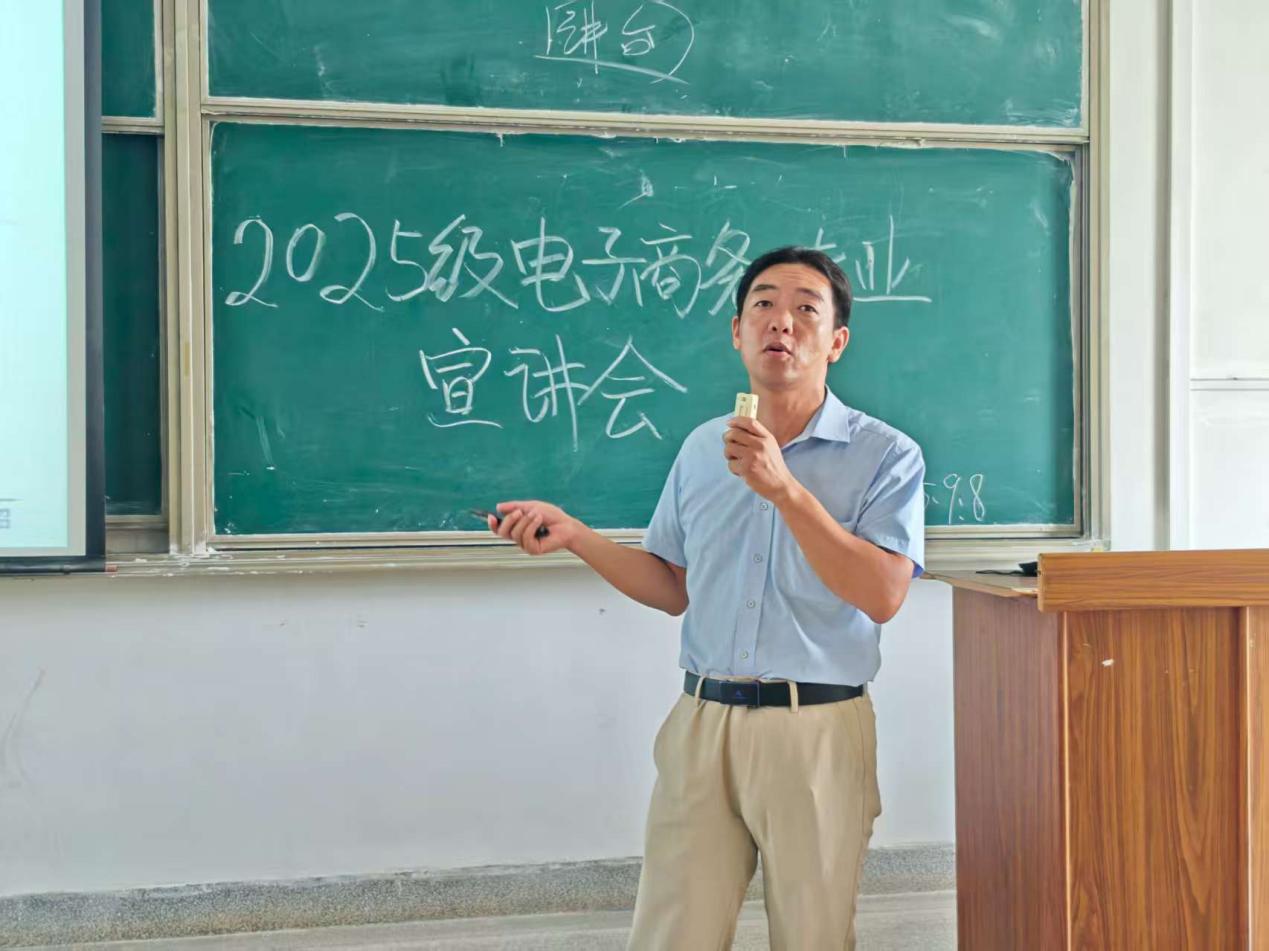 讲台
2025级电子商务 业
宣讲会
.9.8